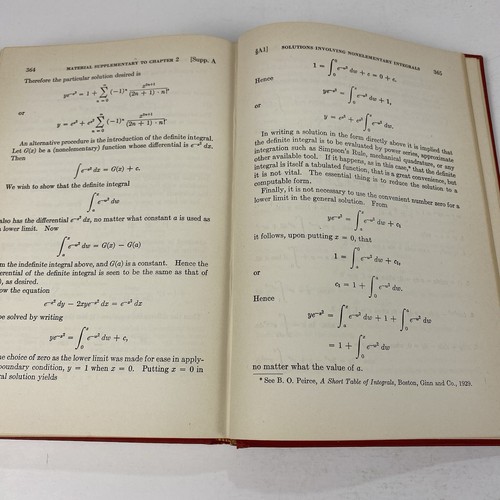 364 MATERIAL SUPPLEMENTARY TO CHAPTER 2 [Supp. A
Therefore the particular solution desired is
ye^{-x^2} = 1 + \sum_{n=0}^{\infty} (-1)^n \frac{x^{2n+1}}{(2n + 1) \cdot n!},
or
y = e^{x^2} + e^{x^2} \sum_{n=0}^{\infty} (-1)^n \frac{x^{2n+1}}{(2n + 1) \cdot n!}.
An alternative procedure is the introduction of the definite integral.
Let G(x) be a (nonelementary) function whose differential is e^{-x^2} dx.
Then
\int e^{-x^2} dx = G(x) + c.
We wish to show that the definite integral
\int_0^x e^{-w^2} dw
also has the differential e^{-x^2} dx, no matter what constant a is used as
lower limit. Now
\int_a^x e^{-w^2} dw = G(x) - G(a)
the indefinite integral above, and G(a) is a constant. Hence the
differential of the definite integral is seen to be the same as that of
as desired.
the equation
e^{-x^2} dy - 2xye^{-x^2} dx = e^{-x^2} dx
be solved by writing
ye^{-x^2} = \int_0^x e^{-w^2} dw + c,
choice of zero as the lower limit was made for ease in apply-
boundary condition, y = 1 when x = 0. Putting x = 0 in
solution yields
§A3] SOLUTIONS INVOLVING NONELEMENTARY INTEGRALS 365
1 = \int_0^0 e^{-w^2} dw + c = 0 + c.
Hence
ye^{-x^2} = \int_0^x e^{-w^2} dw + 1,
or
y = e^{x^2} + e^{x^2} \int_0^x e^{-w^2} dw.
In writing a solution in the form directly above it is implied that
the definite integral is to be evaluated by power series, approximate
integration such as Simpson's Rule, mechanical quadrature, or any
other available tool. If it happens, as in this case,* that the definite
integral is itself a tabulated function, that is a great convenience, but
it is not vital. The essential thing is to reduce the solution to a
computable form.
Finally, it is not necessary to use the convenient number zero for a
lower limit in the general solution. From
ye^{-x^2} = \int_a^x e^{-w^2} dw + c_1
it follows, upon putting x = 0, that
1 = \int_a^0 e^{-w^2} dw + c_1,
or
c_1 = 1 + \int_0^a e^{-w^2} dw.
Hence
ye^{-x^2} = \int_a^x e^{-w^2} dw + 1 + \int_0^a e^{-w^2} dw
= 1 + \int_0^x e^{-w^2} dw
no matter what the value of a.
* See B. O. Peirce, A Short Table of Integrals, Boston, Ginn and Co., 1929.